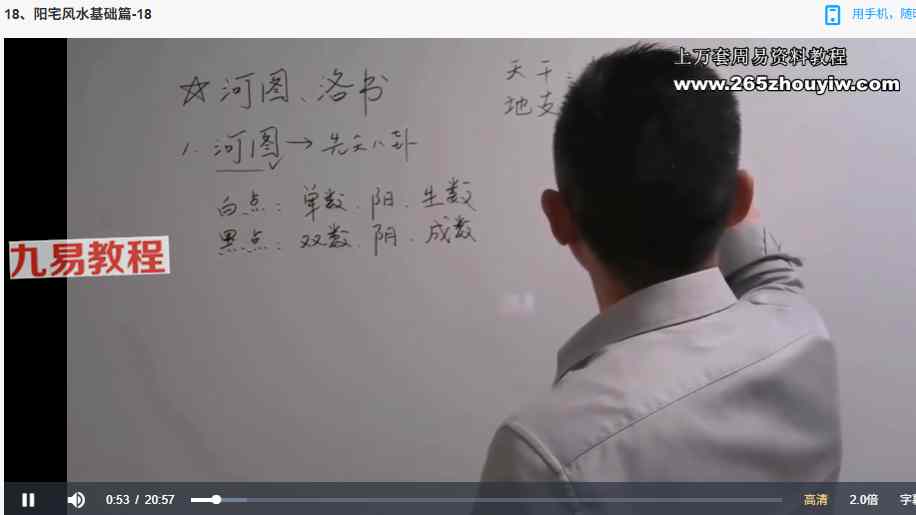 18、阳宅风水基础篇-18
用手机，随时
上万套周易资料教程
www.265zhouyiw.com
☆河图、洛书
天干:
地支
1. 河图→先天八卦
白点：单数、阳、生数
黑点：双数、阴、成数
九易教程
0:53 / 20:57
高清 2.0倍 字幕